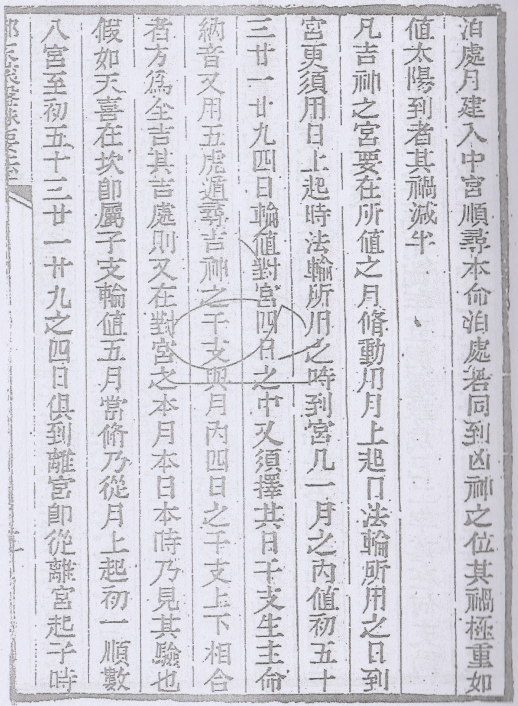 泊處月建入中宮順尋本命泊處若同到凶神之位其禍極重如
值太陽到者其禍減半
凡吉神之宮要在所值之月脩動用月上起日法輪所用之日到
宮更須用日上起時法輪所用之時到宮凡一月之內值初五十
三廿一廿九四日輪值對宮四日之中又須擇其日干支生主命
納音又用五虎遁尋吉神之干支與月內四日之干支上下相合
者方為全吉其吉處則又在對宮之本月本日本時乃見其驗也
假如天喜在坎卽屬子支輪值五月當脩乃從月上起初一順數
八宮至初五十三廿一廿九之四日俱到離宮卽從離宮起子時